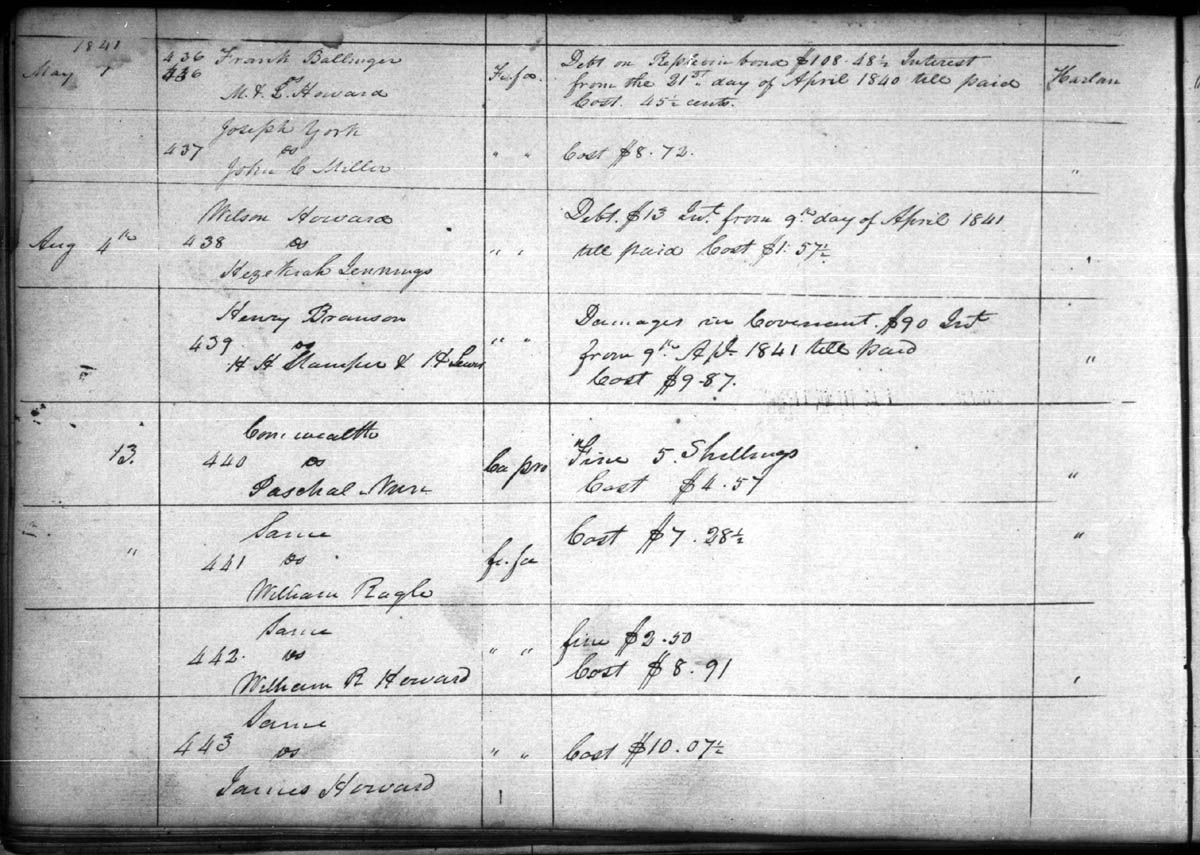 1841
May 7 436 Frank Ballinger Fi. fa Debt on Replevin bond $108.48½ Interest Harlan
436 vs from the 21st day of April 1840 till paid
M. & L. Howard Cost 45½ cents.
Joseph York
437 vs " " Cost $8.72. "
John C Miller
Wilson Howard Debt. $13 Int. from 9th day of April 1841
Aug 4th 438 vs " " till paid Cost $1.57½ "
Hezekiah Jennings
Henry Branson Damages in Covenant. $90 Int
439 vs " " from 9th Apl 1841 till paid "
H H & H Lewis Cost $9.87.
Comwealth
13. 440 vs Ca pro Fine 5. Shillings "
Paschal Nunn Cost $4.57
Same Cost $7.28½ "
" 441 vs fi. fa
William Ragle
Same fine $2.50
442. vs " " Cost $8.91 "
William R Howard
Same
443 vs " " Cost $10.07½
James Howard